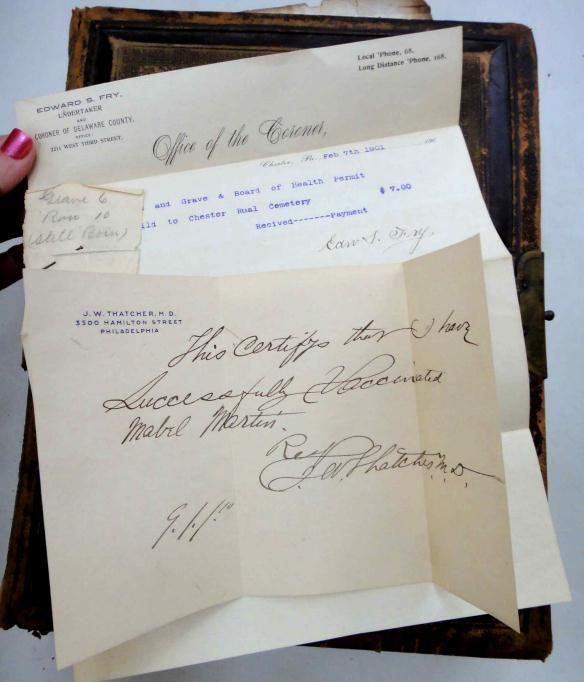 EDWARD S. FRY,
UNDERTAKER
AND
CORONER OF DELAWARE COUNTY,
OFFICE:
2211 WEST THIRD STREET.
Local 'Phone, 68.
Long Distance 'Phone, 168.
Office of the Coroner,
Chester, Pa., Feb 7th 1901 190
and Grave & Board of Health Permit
ild to Chester Rual Cemetery $ 7.00
Recived-------Payment
Edw S. Fry,
Grave 6
Row 10
(Still Born)
J. W. THATCHER, M. D.
3500 HAMILTON STREET
PHILADELPHIA
This Certifys that I have
Successfully Vaccinated
Mabel Martin.
J. W. Thatcher M.D.